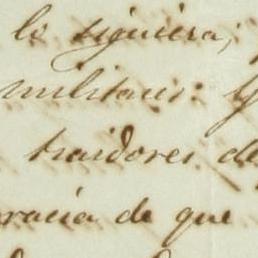 le siguiera;
militares: y
traidores. de
racia de que